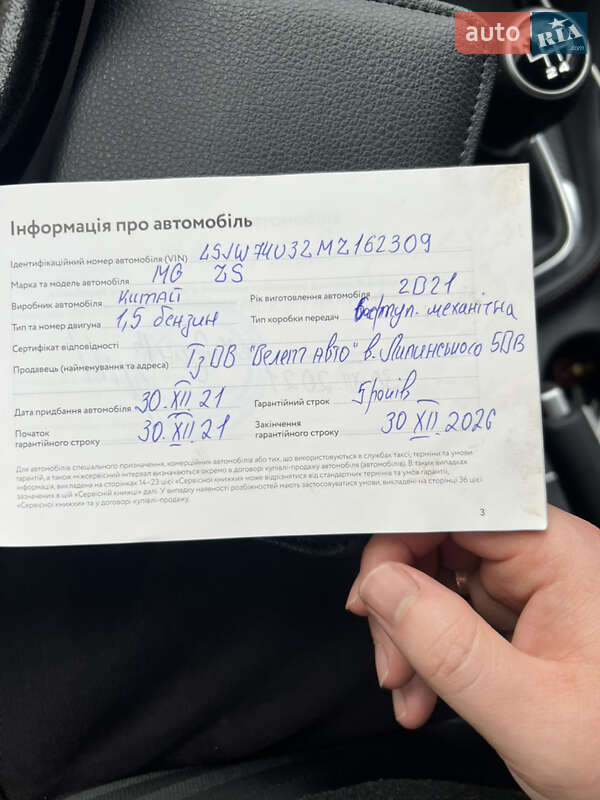 auto RIA .com
2 4
Інформація про автомобіль
Ідентифікаційний номер автомобіля (VIN) LSJW74U32MZ162309
Марка та модель автомобіля MG ZS
Виробник автомобіля Китай Рік виготовлення автомобіля 2021
Тип та номер двигуна 1,5 бензин Тип коробки передач механічна
Сертифікат відповідності
Продавець (найменування та адреса) ТзОВ "Велет Авто" в. Липинського 50В
Дата придбання автомобіля 30.XII.21 Гарантійний строк 5 років
Початок гарантійного строку 30.XII.21 Закінчення гарантійного строку 30 XII.2026
Для автомобілів спеціального призначення, комерційних автомобілів або тих, що використовуються в службах таксі, терміни та умови
гарантій, а також міжсервісний інтервал визначаються окремо в договорі купівлі-продажу автомобіля (автомобілів). В таких випадках
інформація, викладена на сторінках 14–23 цієї «Сервісної книжки» може відрізнятися від стандартних термінів та умов гарантії,
зазначених в цій «Сервісній книжці» далі. У випадку наявності розбіжностей мають застосовуватися умови, викладені на сторінці 36 цієї
«Сервісної книжки» та у договорі купівлі-продажу.
3